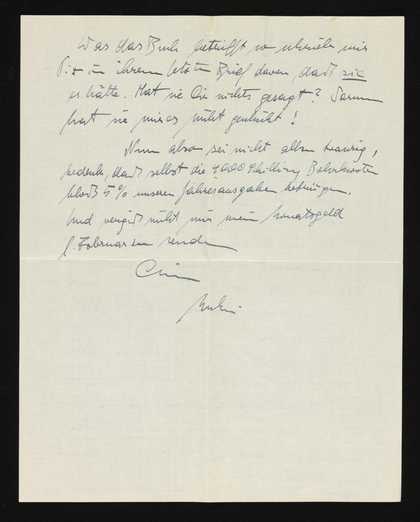 Was das Buch betrifft so schrieb mir
in ihrem letzten Brief davon, daß sie
es hätte. Hat sie Dir nichts gesagt? Darum
hat sie mir es nicht geschickt!
Nun also sei nicht allzu traurig,
bedenk, daß selbst die 1000 Schilling
bloß 5% unserer Jahresausgaben betragen.
Und vergiß nicht mir mein Monatsgeld
f. Februar zu senden